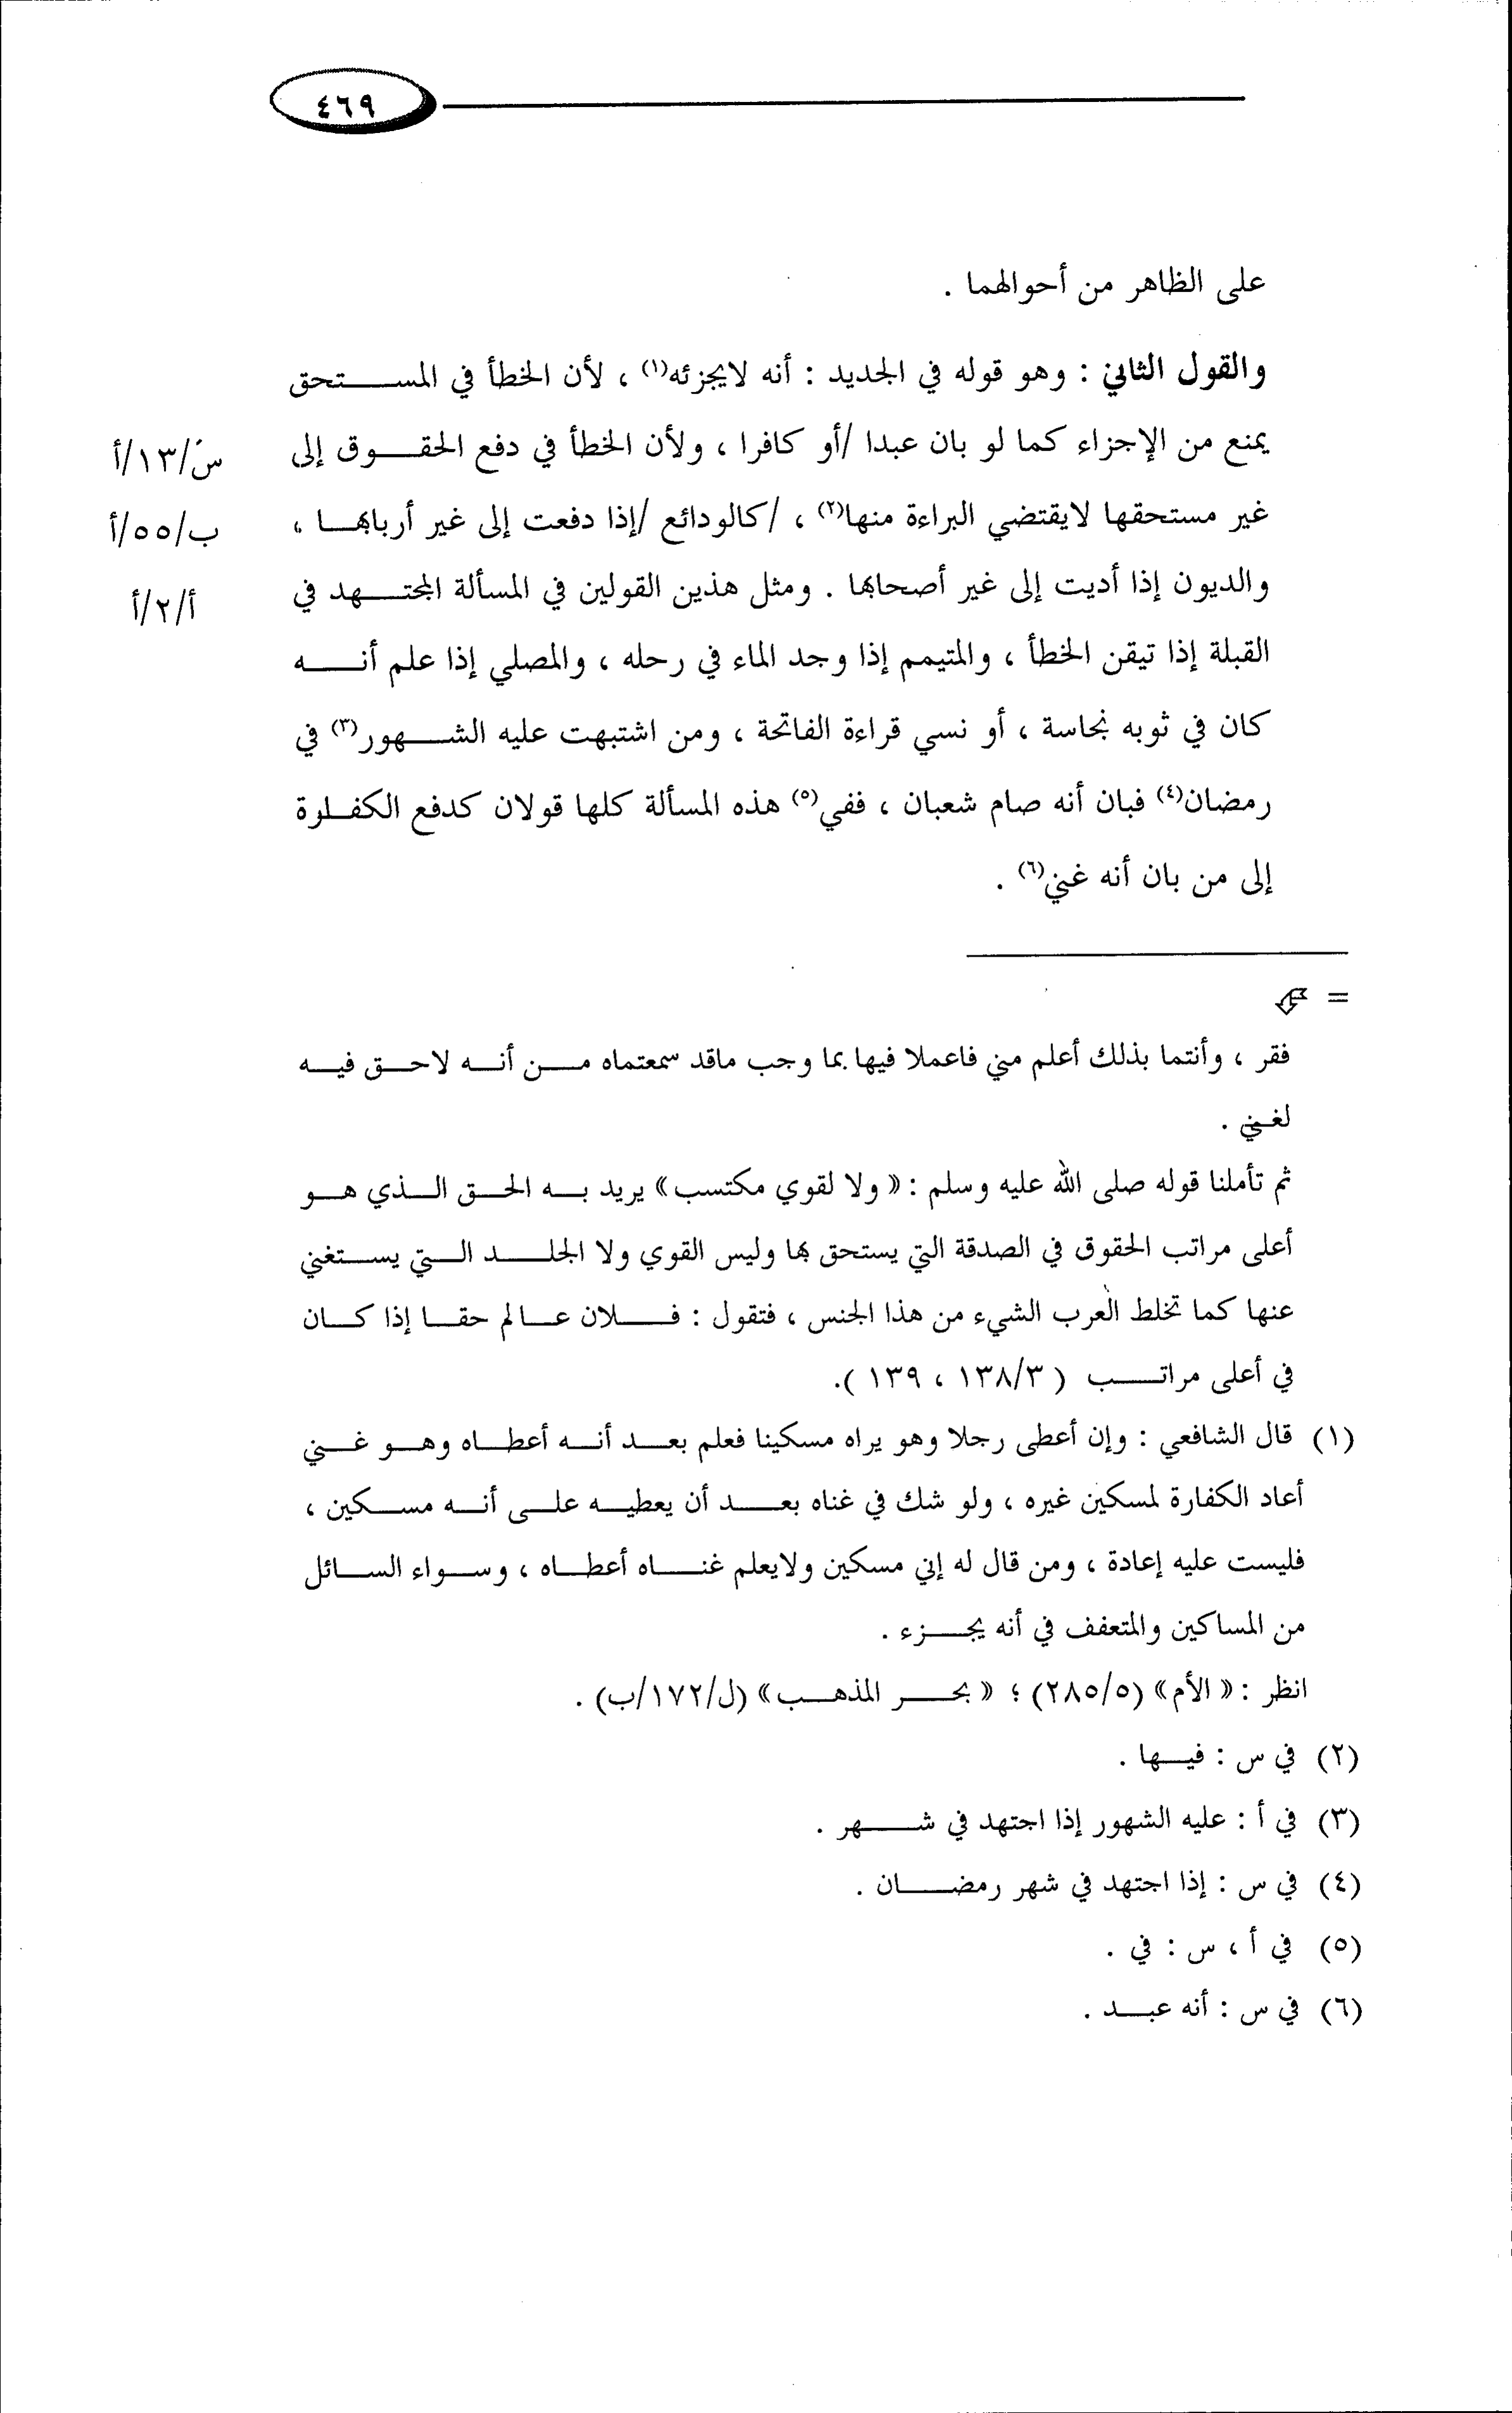 ٤٦٩
على الظاهر من أحوالهما .
والقول الثاني : وهو قوله في الجديد : أنه لايجزئه(١) ، لأن الخطأ في المستحق
يمنع من الإجزاء كما لو بان عبدا /أو كافرا ، ولأن الخطأ في دفع الحقوق إلى
س/١٣/أ
غير مستحقها لايقتضي البراءة منها(٢) ، /كالودائع /إذا دفعت إلى غير أربابها ،
ب/٥٥/أ
والديون إذا أديت إلى غير أصحابها . ومثل هذين القولين في المسألة المجتهد في
أ/٢/أ
القبلة إذا تيقن الخطأ ، والمتيمم إذا وجد الماء في رحله ، والمصلي إذا علم أنه
كان في ثوبه نجاسة ، أو نسي قراءة الفاتحة ، ومن اشتبهت عليه الشهور(٣) في
رمضان(٤) فبان أنه صام شعبان ، ففي(٥) هذه المسألة كلها قولان كدفع الكفارة
إلى من بان أنه غني(٦) .
=
فقر ، وأنتما بذلك أعلم مني فاعملا فيها بما وجب ماقد سمعتماه من أنه لاحق فيه
لغني .
ثم تأملنا قوله صلى الله عليه وسلم : « ولا لقوي مكتسب » يريد به الحق الذي هو
أعلى مراتب الحقوق في الصدقة التي يستحق بها وليس القوي ولا الجلد التي يستغني
عنها كما تخلط العرب الشيء من هذا الجنس ، فتقول : فلان عالم حقا إذا كان
في أعلى مراتب ( ١٣٨/٣ ، ١٣٩ ).
(١) قال الشافعي : وإن أعطى رجلا وهو يراه مسكينا فعلم بعد أنه أعطاه وهو غني
أعاد الكفارة لمسكين غيره ، ولو شك في غناه بعد أن يعطيه على أنه مسكين ،
فليست عليه إعادة ، ومن قال له إني مسكين ولايعلم غناه أعطاه ، وسواء السائل
من المساكين والمتعفف في أنه يجزء .
انظر : « الأم » (٢٨٥/٥) ؛ « بحر المذهب » (ل/١٧٢/ب) .
(٢) في س : فيها .
(٣) في أ : عليه الشهور إذا اجتهد في شهر .
(٤) في س : إذا اجتهد في شهر رمضان .
(٥) في أ ، س : في .
(٦) في س : أنه عبد .